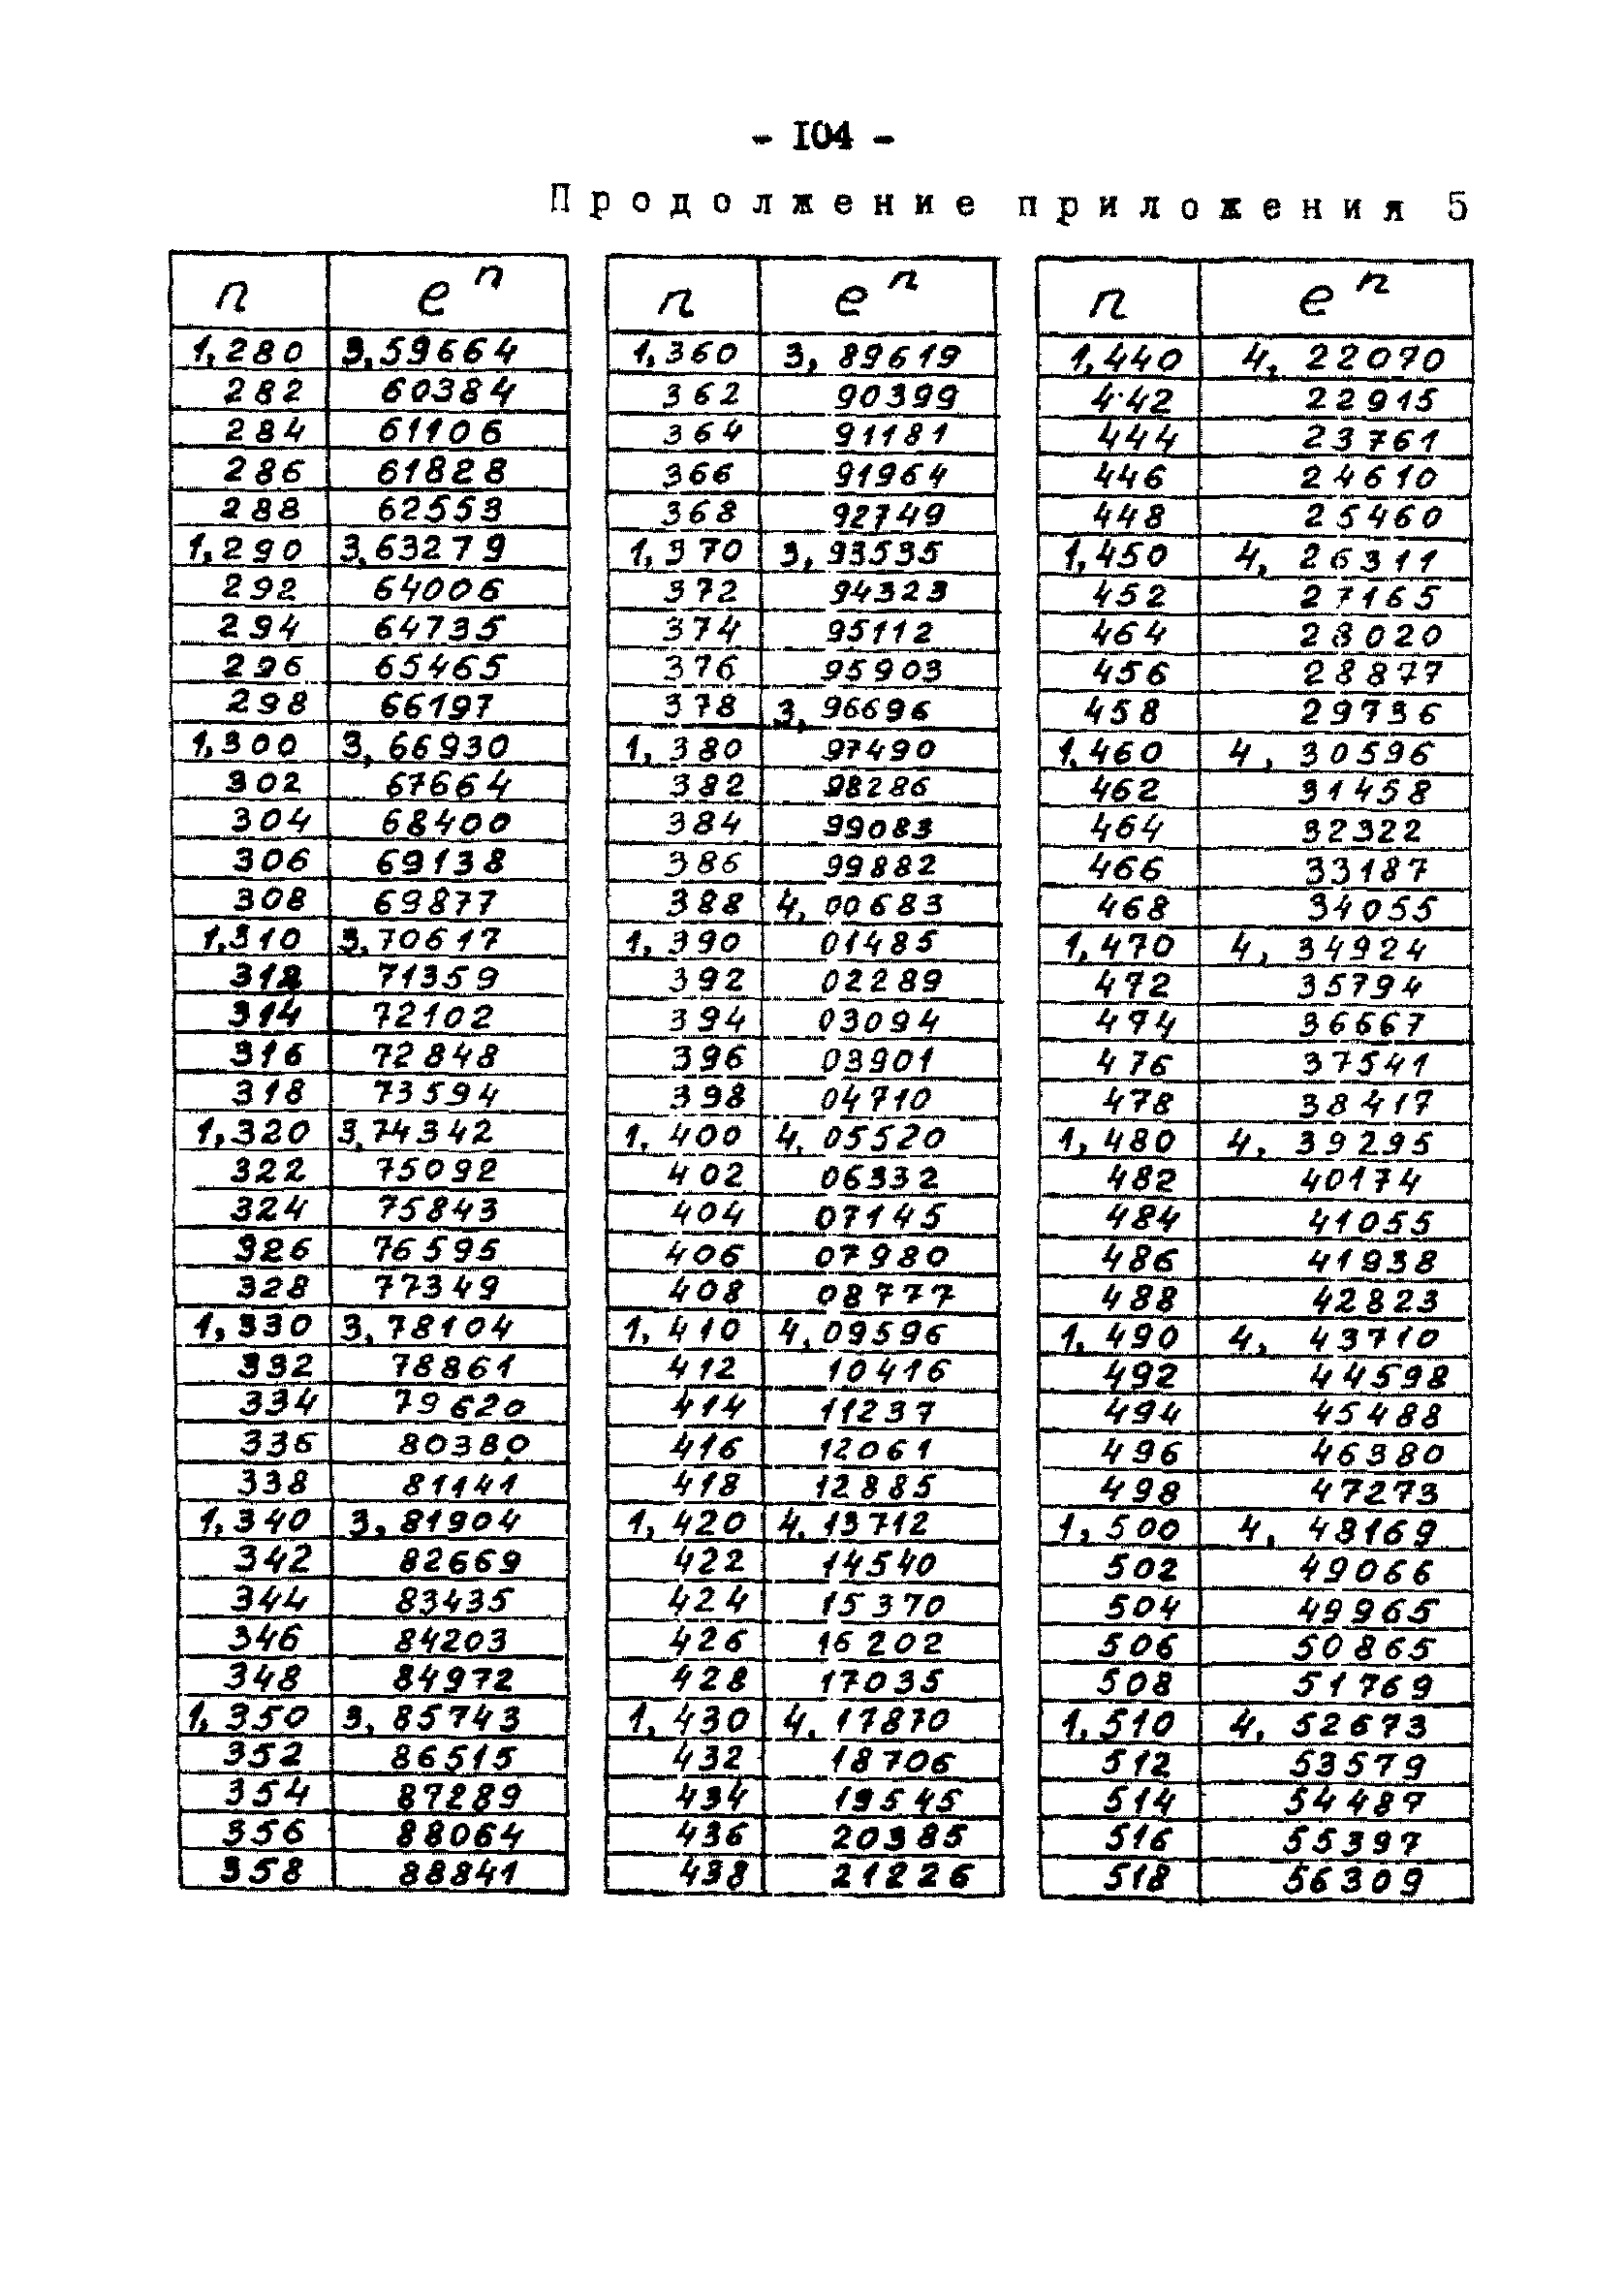 - I04 -
Продолжение приложения 5
n eⁿ n eⁿ n eⁿ
1,280 3,59664 1,360 3,89619 1,440 4,22070
282 60384 362 90399 442 22915
284 61106 364 91181 444 23761
286 61828 366 91964 446 24610
288 62553 368 92749 448 25460
1,290 3,63279 1,370 3,93535 1,450 4,26311
292 64006 372 94323 452 27165
294 64735 374 95112 464 28020
296 65465 376 95903 456 28877
298 66197 378 3,96696 458 29736
1,300 3,66930 1,380 97490 1,460 4,30596
302 67664 382 98286 462 31458
304 68400 384 99083 464 32322
306 69138 386 99882 466 33187
308 69877 388 4,00683 468 34055
1,310 3,70617 1,390 01485 1,470 4,34924
312 71359 392 02289 472 35794
314 72102 394 03094 474 36667
316 72848 396 03901 476 37541
318 73594 398 04710 478 38417
1,320 3,74342 1,400 4,05520 1,480 4,39295
322 75092 402 06332 482 40174
324 75843 404 07145 484 41055
326 76595 406 07980 486 41938
328 77349 408 08777 488 42823
1,330 3,78104 1,410 4,09596 1,490 4,43710
332 78861 412 10416 492 44598
334 79620 414 11237 494 45488
336 80380 416 12061 496 46380
338 81141 418 12885 498 47273
1,340 3,81904 1,420 4,13712 1,500 4,48169
342 82669 422 14540 502 49066
344 83435 424 15370 504 49965
346 84203 426 16202 506 50865
348 84972 428 17035 508 51769
1,350 3,85743 1,430 4,17870 1,510 4,52673
352 86515 432 18706 512 53579
354 87289 434 19545 514 54487
356 88064 436 20385 516 55397
358 88841 438 21226 518 56309